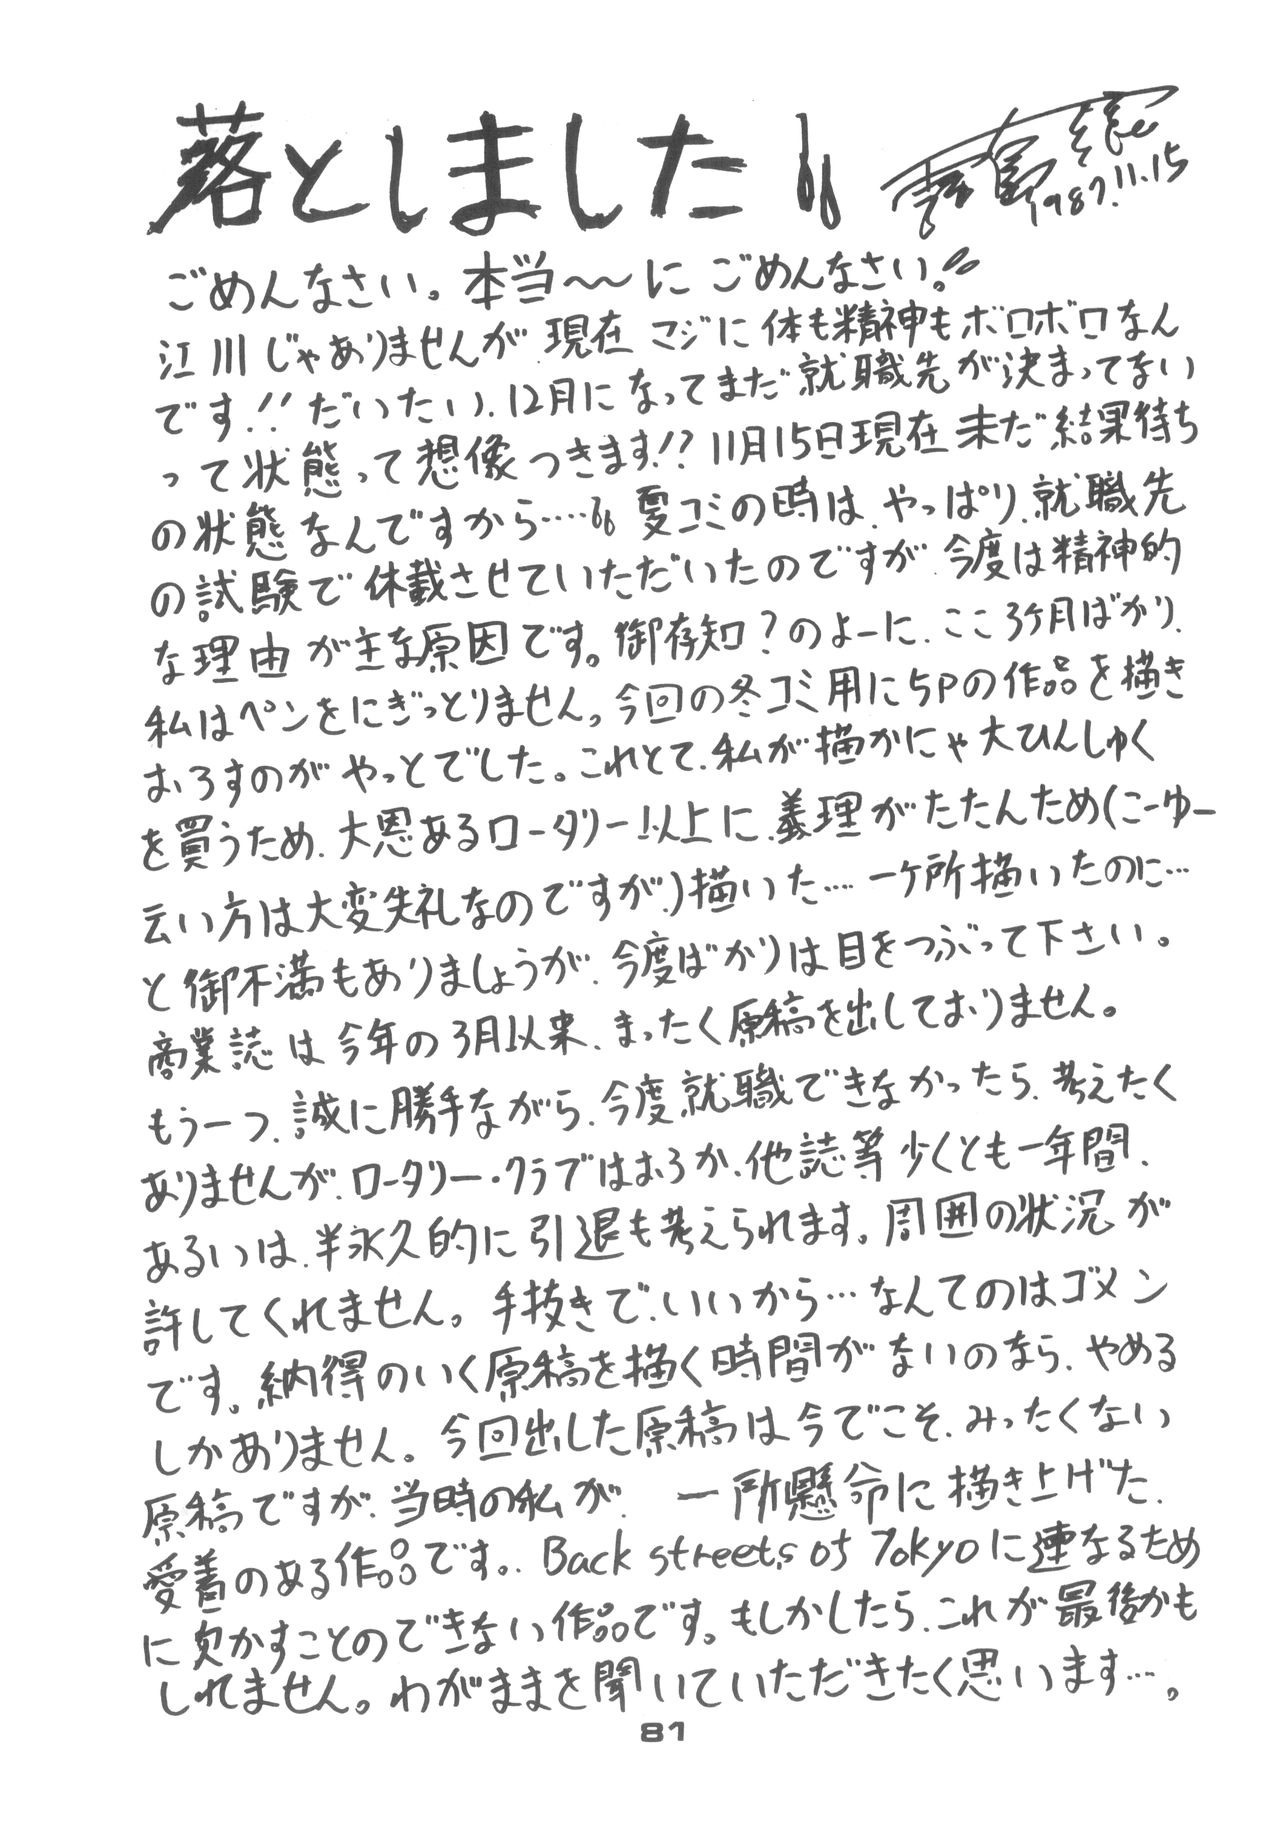 落としました
1987.11.15
ごめんなさい。本当〜〜にごめんなさい。
江川じゃありませんが、現在マジに体も精神もボロボロなん
です!!だいたい、12月になってまだ就職先が決まってない
って状態って想像つきます!?11月15日現在未だ結果待ち
の状態なんですから‥‥夏コミの時は、やっぱり、就職先
の試験で休載させていただいたのですが、今度は精神的
な理由が主な原因です。御存知?のよーに、ここ3ヶ月ばかり、
私はペンをにぎっとりません。今回の冬コミ用に5Pの作品を描き
おろすのがやっとでした。これとて、私が描かにゃ大ひんしゅく
を買うため、大恩あるロータリー以上に、義理がたたんため(こーゆー
云い方は大変失礼なのですが、)描いた‥‥一ヶ所描いたのに…
と御不満もありましょうが、今度ばかりは目をつぶって下さい。
商業誌は今年の3月以来、まったく原稿を出しておりません。
もう一つ、誠に勝手ながら、今度、就職できなかったら、考えたく
ありませんが、ロータリー・クラブはおろか、他誌等少くとも一年間、
あるいは、半永久的に引退も考えられます。周囲の状況が
許してくれません。手抜きで、いいから…なんてのはゴメン
です。納得のいく原稿を描く時間がないのなら、やめる
しかありません。今回出した原稿は今でこそ、みったくない
原稿ですが、当時の私が、一所懸命に描き上げた、
愛着のある作品です。Back streets of Tokyoに連なるため
に欠かすことのできない作品です。もしかしたら、これが最後かも
しれません。わがままを聞いていただきたく思います…。
81